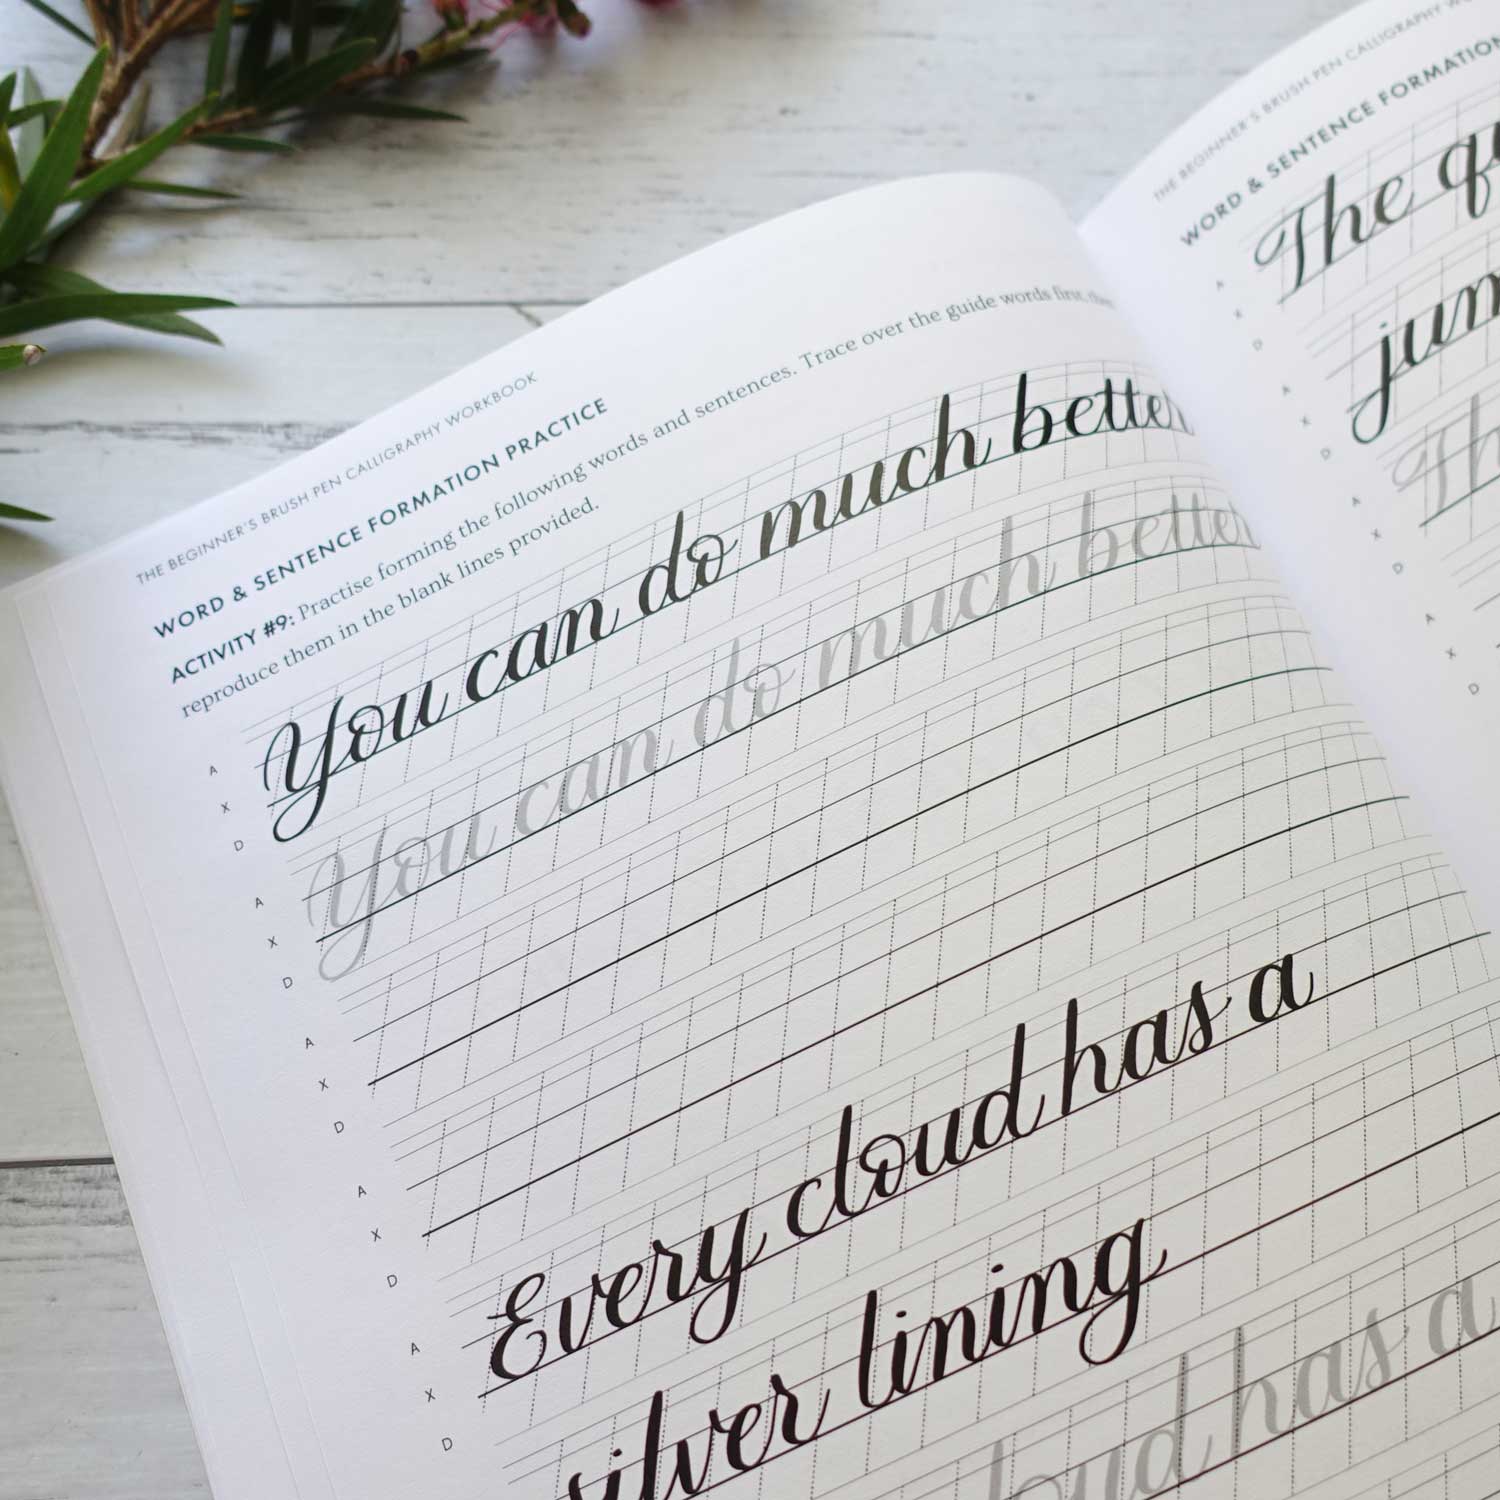 THE BEGINNER'S BRUSH PEN CALLIGRAPHY WORKBOOK
WORD & SENTENCE FORMATION PRACTICE
ACTIVITY #9: Practise forming the following words and sentences. Trace over the guide words first, then
reproduce them in the blank lines provided.
You can do much better
A
X
D
You can do much better
A
X
D
A
X
D
A
X
D
Every cloud has a
A
X
D
silver lining
cloud has a
THE BEGINNER'S BRUSH PEN CALLIGRAPHY
WORD & SENTENCE FORMATION
The
A
X
D
A
X
D
A
X
D
A
X
D